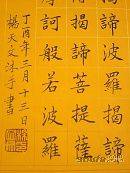 諦波羅揭諦
揭諦菩提薩
訶般若波羅
丁酉年三月十三日
楊天文沐手書